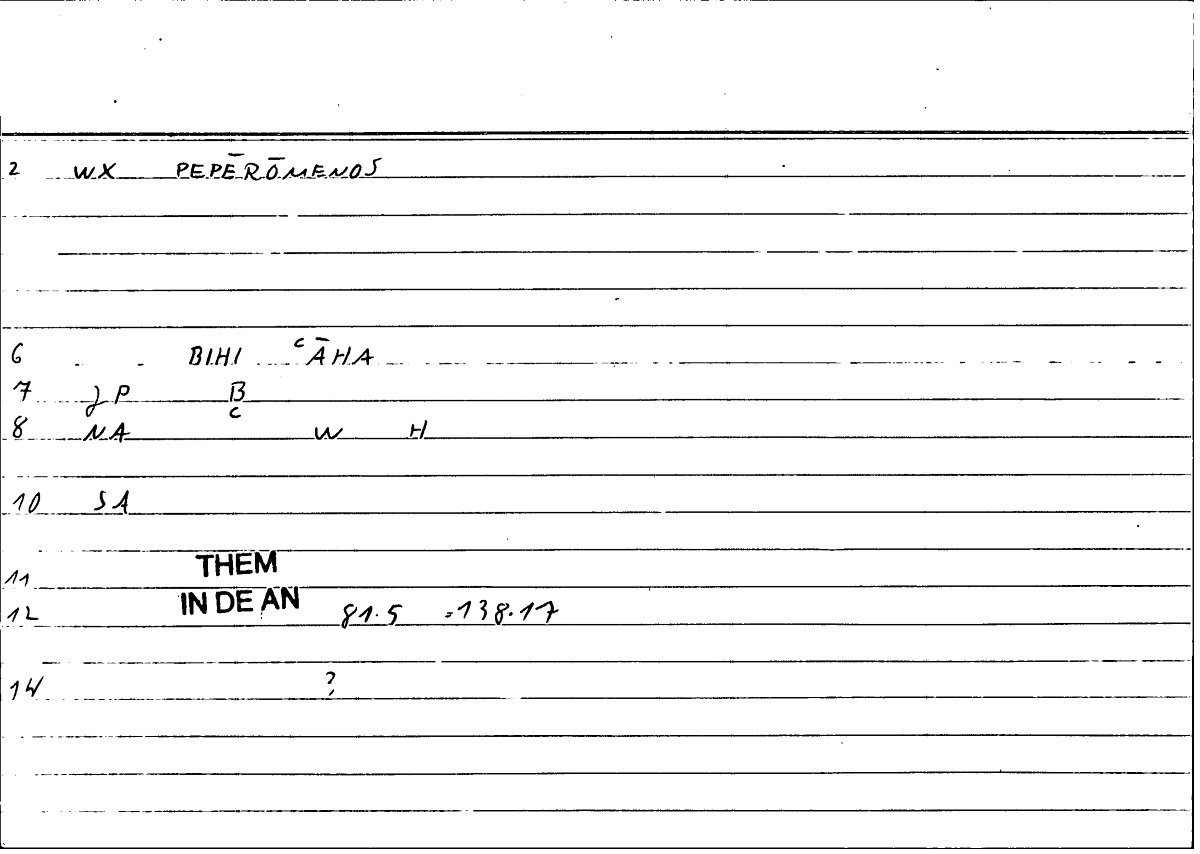 2 WX PEPĒRŌMENOS
6 . . BIHI ᶜĀHA
7 JP B
8 NA C W H
10 SA
11 THEM
12 IN DE AN 81.5 =138.17
14 ?